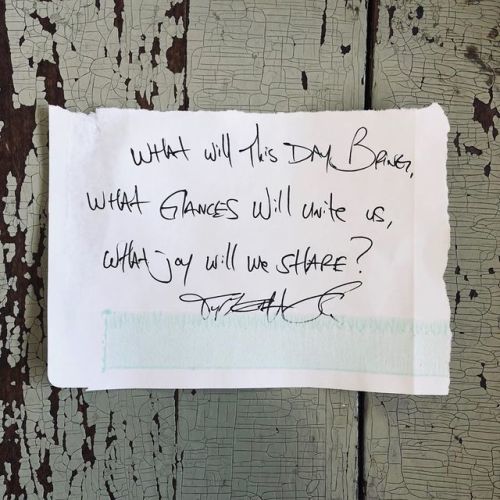 WHAT will This DAY BRING,
WHAT GLANCES Will unite us,
WHAT joy will we SHARE?